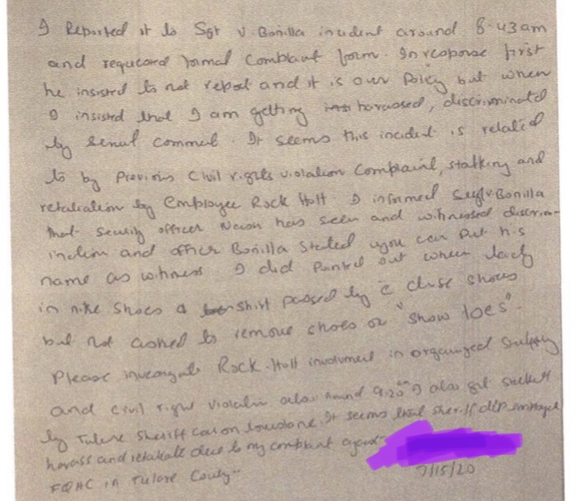 I Reported it to Sgt V. Bonilla incident around 8:43 am
and requested formal Complaint form. In response first
he insisted to not report and it is our Policy but when
I insisted that I am getting harassed, discriminated
by sexual comment. It seems this incident is related
to by Previous Civil rights violation Complaint, stalking and
retaliation by Employee Rock Hutt I informed Sgt V. Bonilla
that security officer has seen and witnessed discrim-
ination and officer Bonilla stated you can Put his
name as witness I did Pointed out when lady
in nike shoes & shirt passed by c close shoes
but not asked to remove shoes or "show toes".
Please investigate Rock Hutt involvement in organized Stalking
and civil right violation also around 9:20 I also got
by Tulare Sheriff Car on It seems that sheriff dep
harass and retaliate due to my complaint against
FQHC in Tulare County -
7/15/20